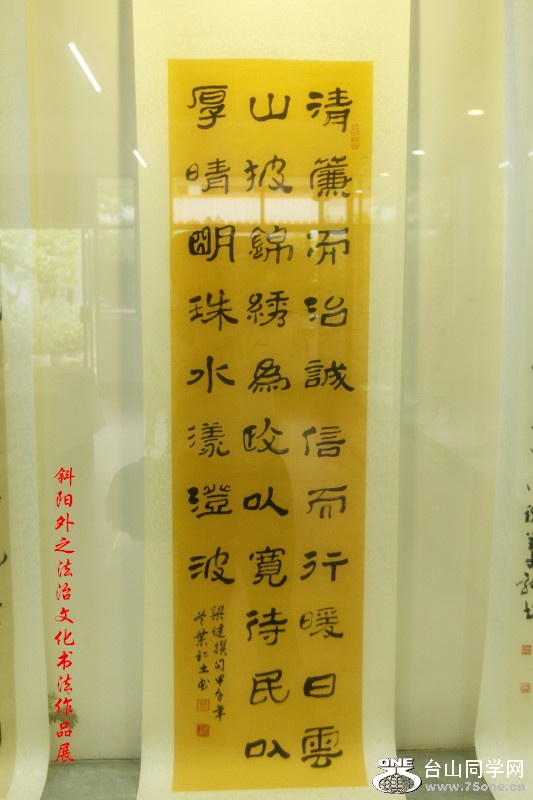 清簾而治誠信而行暖日雲
山披錦綉為政以寬待民以
厚晴明珠水漾澄波
梁健撰句甲午年
书
斜阳外之法治文化书法作品展
ONE
台山同学网
www.75one.cn